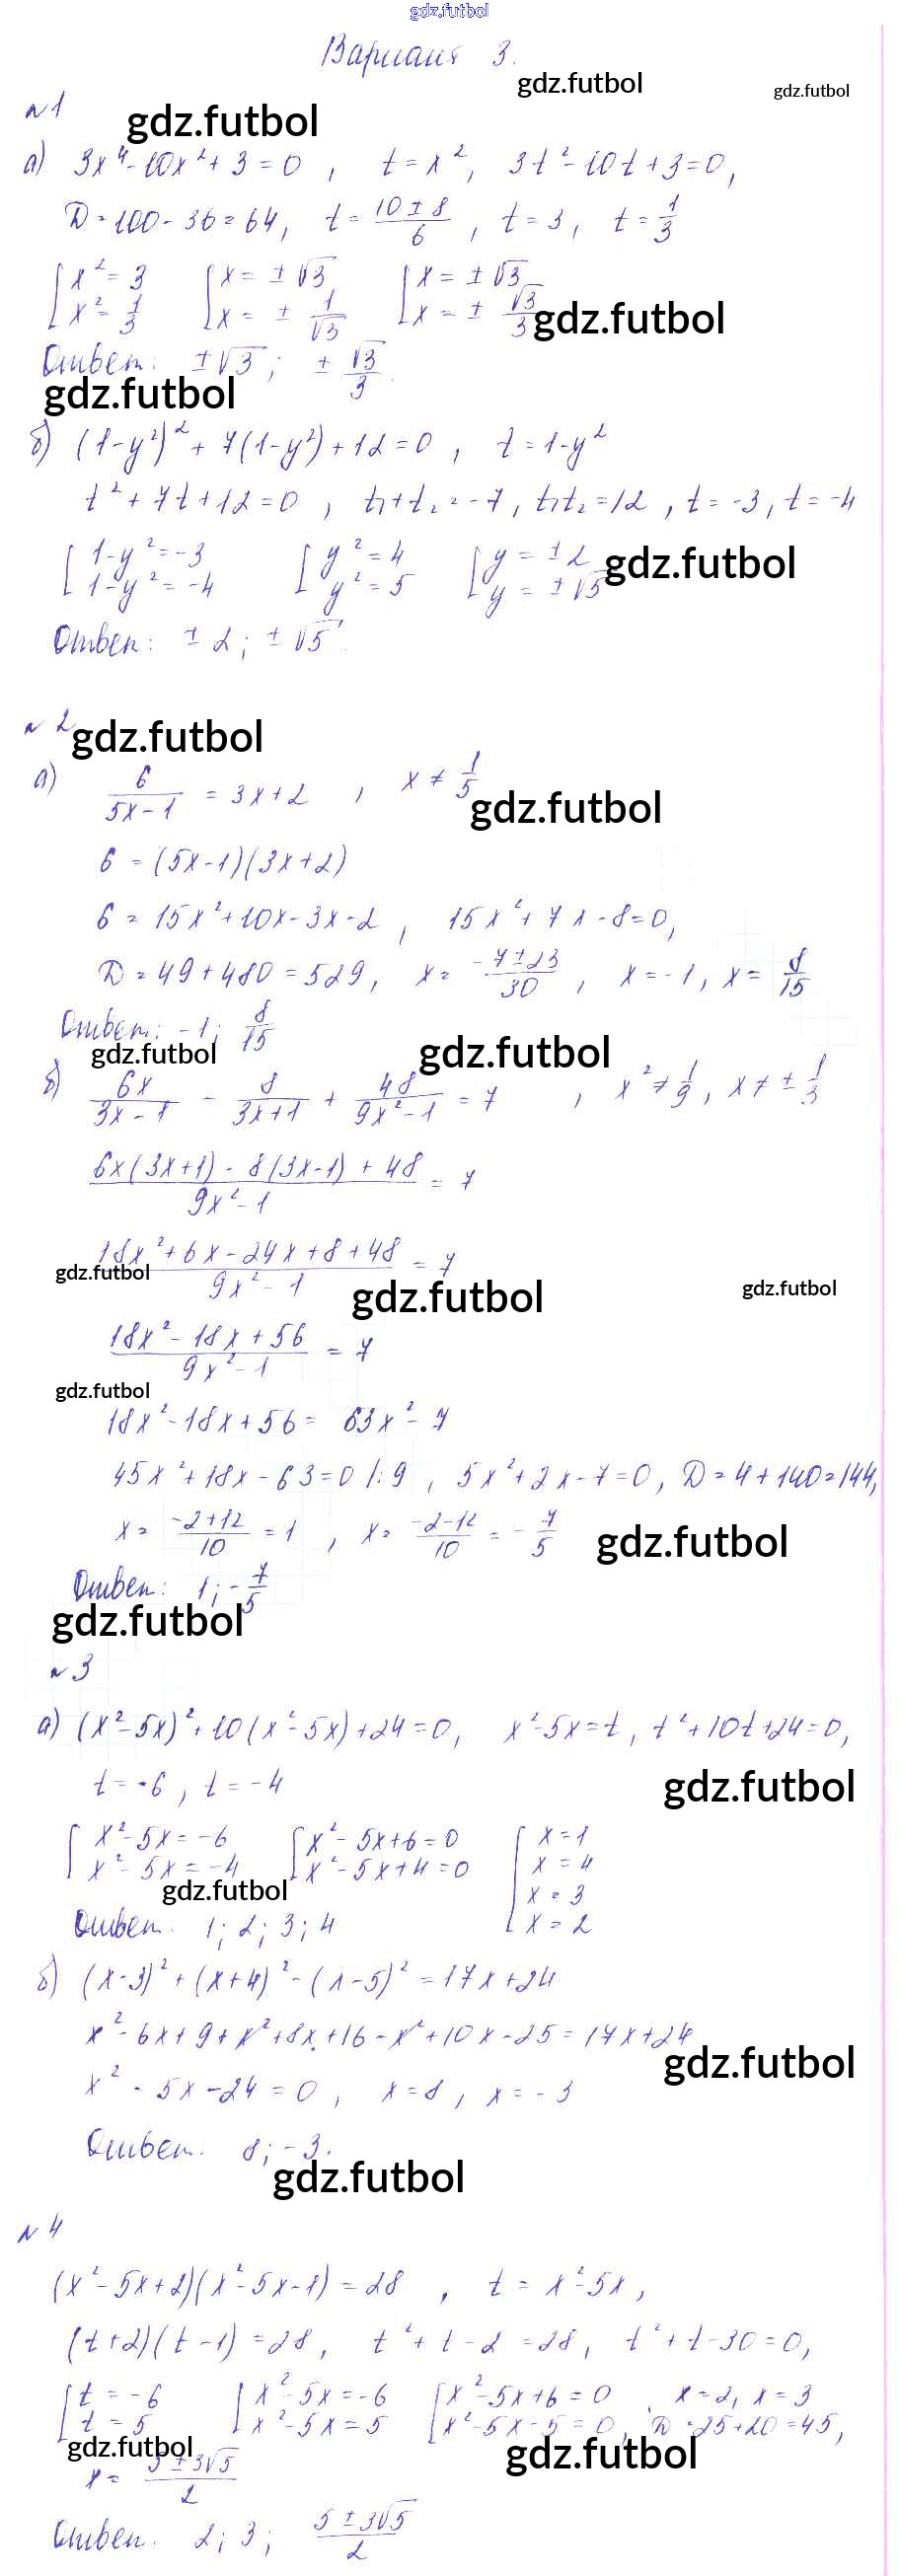 gdz.futbol
Вариант 3.
gdz.futbol
gdz.futbol
№1
gdz.futbol
а) 3x⁴ - 10x² + 3 = 0, t = x², 3t² - 10t + 3 = 0,
D = 100 - 36 = 64, t = (10 ± 8)/6, t = 3, t = 1/3
[ x² = 3 [ x = ± √3 [ x = ± √3
x² = 1/3 x = ± 1/√3 x = ± √3/3
gdz.futbol
Ответ: ± √3; ± √3/3.
gdz.futbol
б) (1-y²)² + 7(1-y²) + 12 = 0, t = 1-y²
t² + 7t + 12 = 0, t₁+t₂ = -7, t₁t₂ = 12, t = -3, t = -4
[ 1-y² = -3 [ y² = 4 [ y = ± 2
1-y² = -4 y² = 5 y = ± √5
gdz.futbol
Ответ: ± 2; ± √5.
№2
gdz.futbol
а) 6/(5x-1) = 3x+2, x ≠ 1/5
gdz.futbol
6 = (5x-1)(3x+2)
6 = 15x² + 10x - 3x - 2, 15x² + 7x - 8 = 0,
D = 49 + 480 = 529, x = (-7±23)/30, x = -1, x = 8/15
Ответ: -1; 8/15
gdz.futbol
gdz.futbol
б) 6x/(3x-1) - 8/(3x+1) + 48/(9x²-1) = 7, x² ≠ 1/9, x ≠ ± 1/3
(6x(3x+1) - 8(3x-1) + 48)/(9x²-1) = 7
(18x² + 6x - 24x + 8 + 48)/(9x²-1) = 7
gdz.futbol
gdz.futbol
gdz.futbol
(18x² - 18x + 56)/(9x²-1) = 7
gdz.futbol
18x² - 18x + 56 = 63x² - 7
45x² + 18x - 63 = 0 /: 9, 5x² + 2x - 7 = 0, D = 4 + 140 = 144,
x = (-2+12)/10 = 1, x = (-2-12)/10 = - 7/5
gdz.futbol
Ответ: 1; - 7/5
gdz.futbol
№3
а) (x²-5x)² + 10(x²-5x) + 24 = 0, x²-5x = t, t² + 10t + 24 = 0,
t = -6, t = -4
gdz.futbol
[ x²-5x = -6 [ x²-5x+6 = 0 [ x = 1
x²-5x = -4 x²-5x+4 = 0 x = 4
x = 3
x = 2
gdz.futbol
Ответ. 1; 2; 3; 4
б) (x-3)² + (x+4)² - (x-5)² = 17x + 24
x² - 6x + 9 + x² + 8x + 16 - x² + 10x - 25 = 17x + 24
gdz.futbol
x² - 5x - 24 = 0, x = 8, x = -3
Ответ. 8; -3.
gdz.futbol
№4
(x²-5x+2)(x²-5x-1) = 28, t = x²-5x,
(t+2)(t-1) = 28, t² + t - 2 = 28, t² + t - 30 = 0,
[ t = -6 [ x²-5x = -6 [ x²-5x+6 = 0, x = 2, x = 3
t = 5 x²-5x = 5 x²-5x-5 = 0, D = 25 + 20 = 45,
gdz.futbol
gdz.futbol
x = (5 ± 3√5)/2
Ответ. 2; 3; (5 ± 3√5)/2